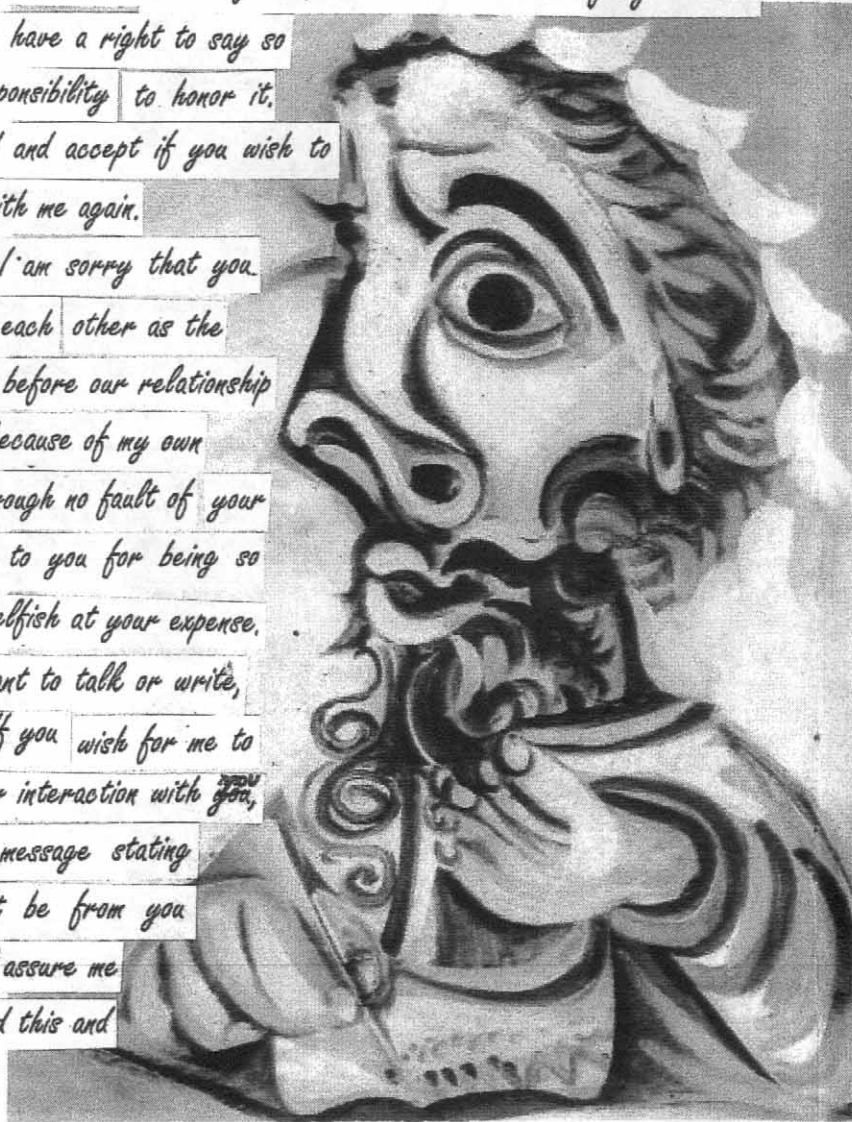 have a right to say so
to honor it.
and accept if you wish to
me again.
I am sorry that you
each other as the
before our relationship
of my own
no fault of your
to you for being so
at your expense.
to talk or write,
you wish for me to
interaction with you,
message stating
be from you
assure me
this and